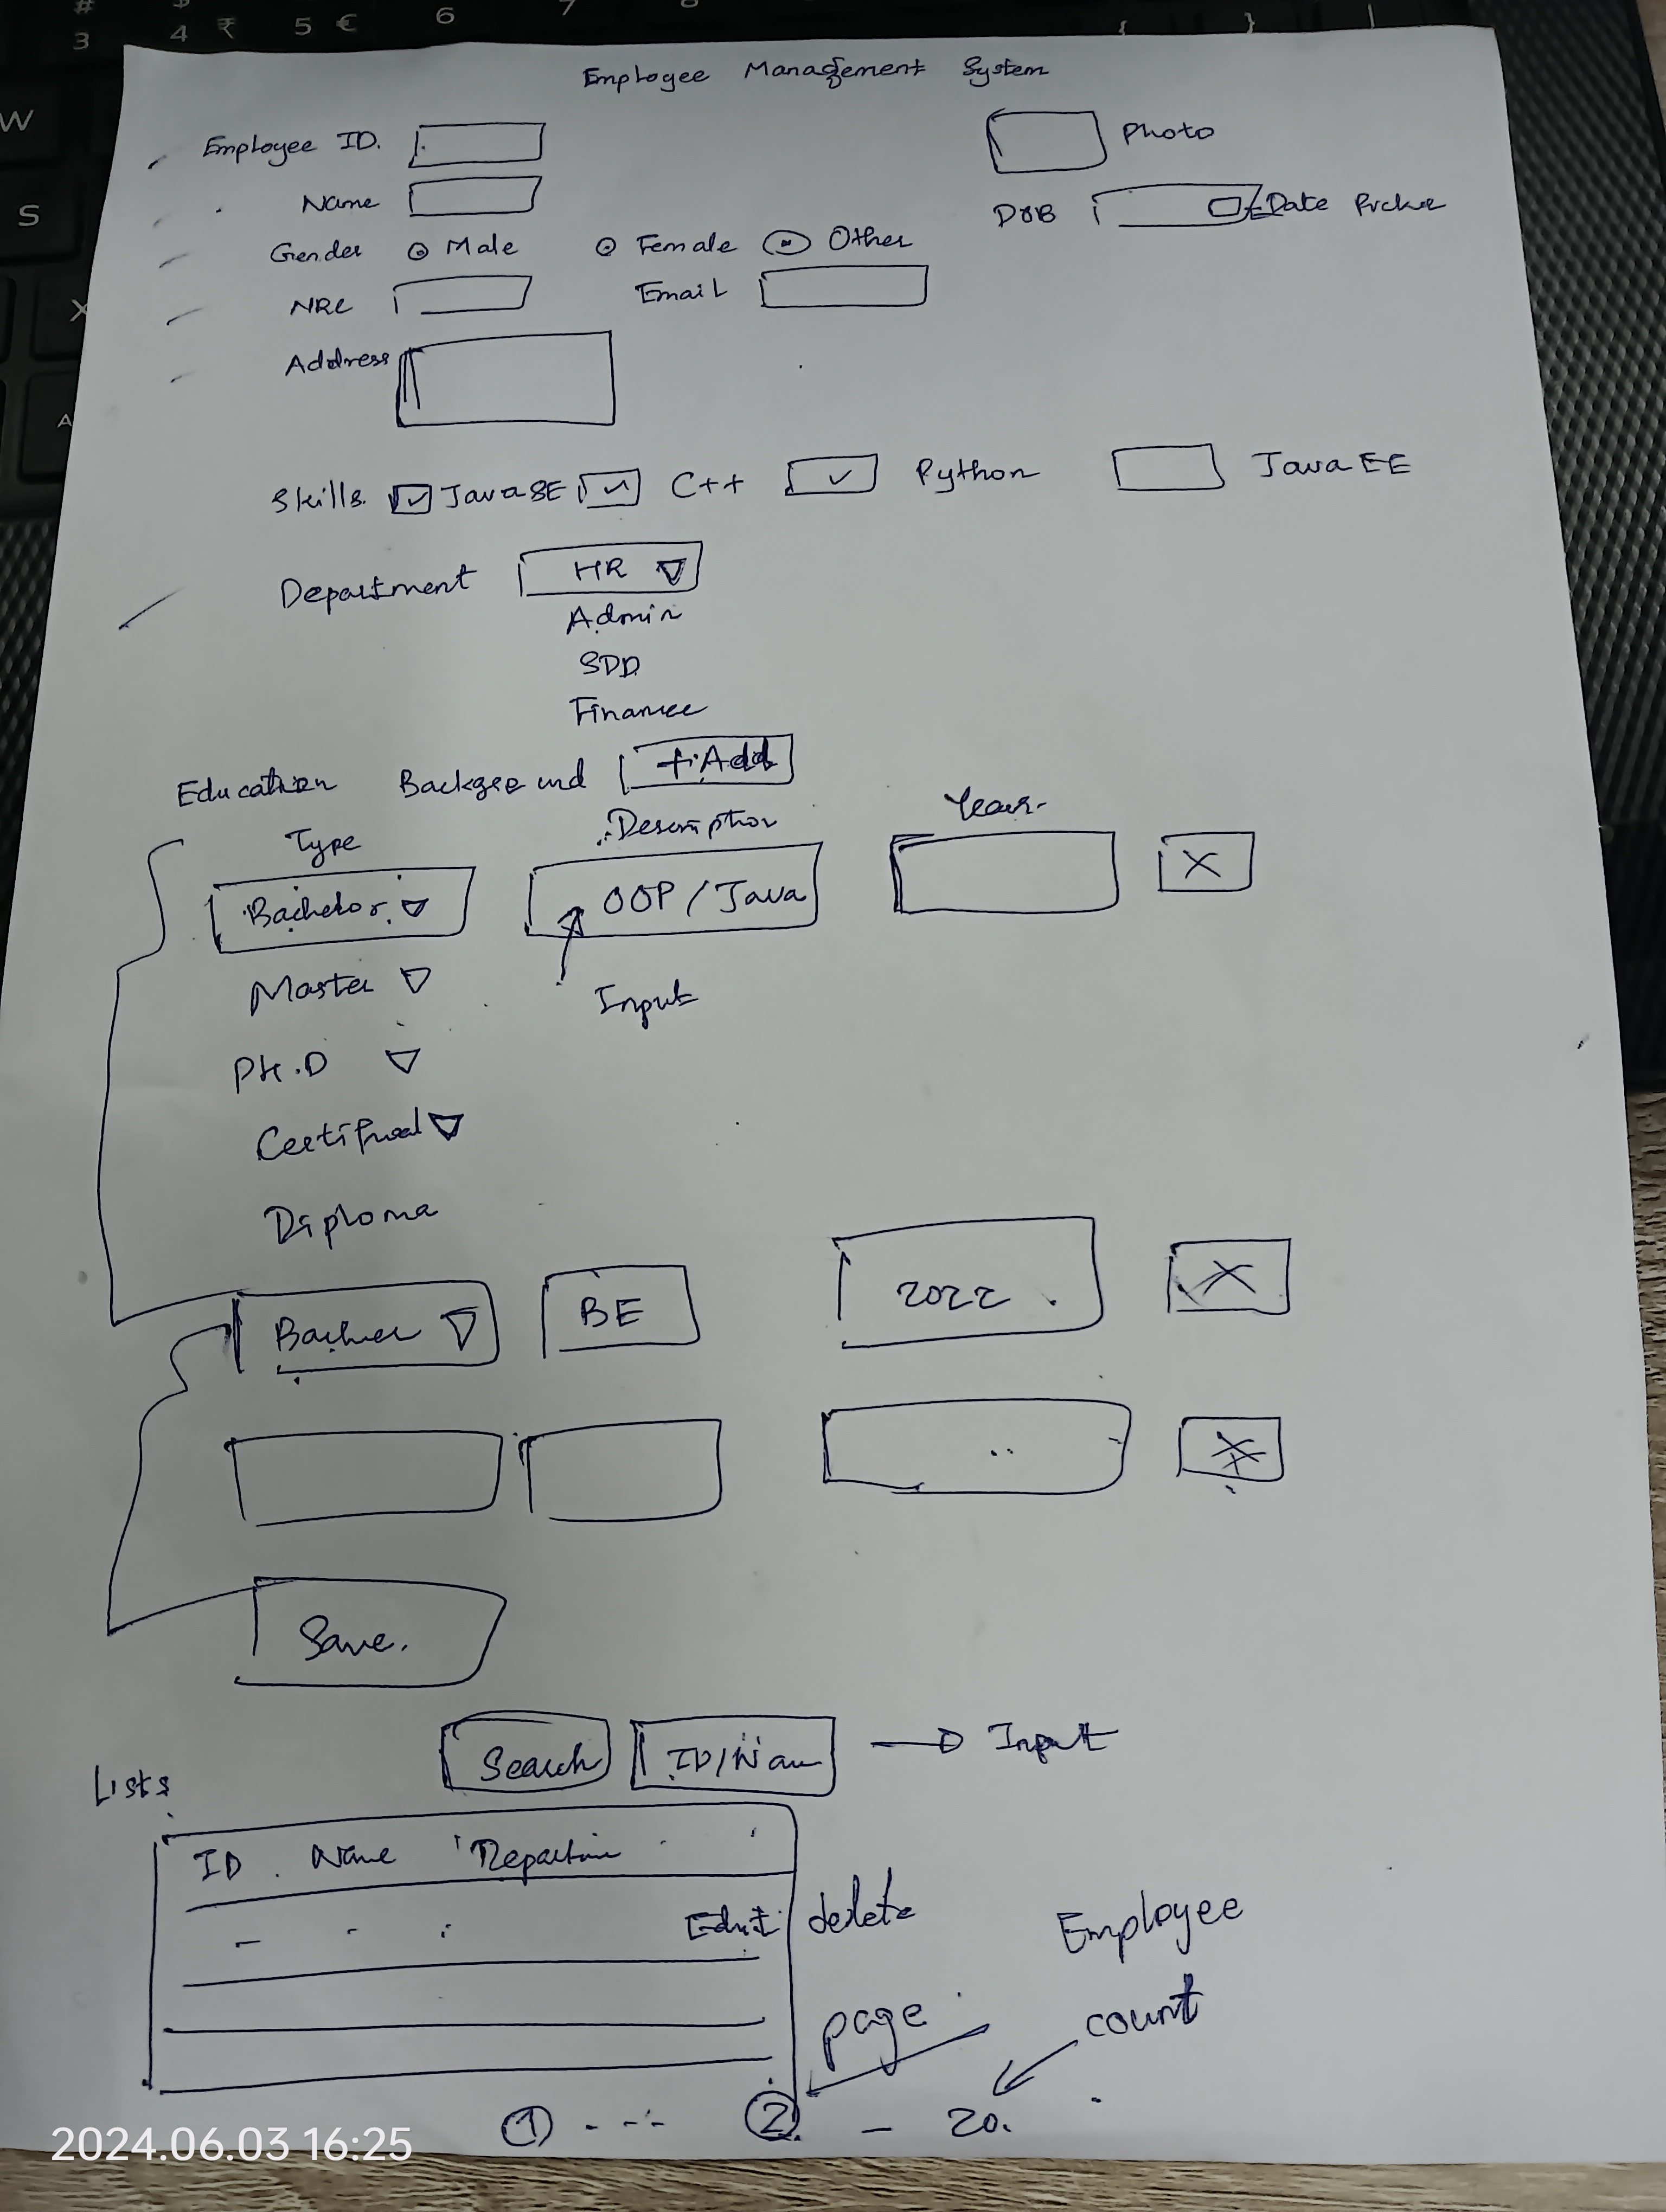 # $
3 4 ₹ 5 € 6 7 8 { } |
W
S
X
A
Employee Management System
Employee ID. Photo
Name DOB Date Picker
Gender Male Female Other
NRC Email
Address
Skills. JavaSE C++ Python Java EE
Department HR
Admin
SDD
Finance
Education Background + Add
Type Description Year
Bachelor OOP / Java X
Master Input
PH.D
Diploma
BE 2022 X
X
Save.
Search ID/Nam Input
Lists
ID Name
Edit delete Employee
page count
1 2 - 20.
2024.06.03 16:25